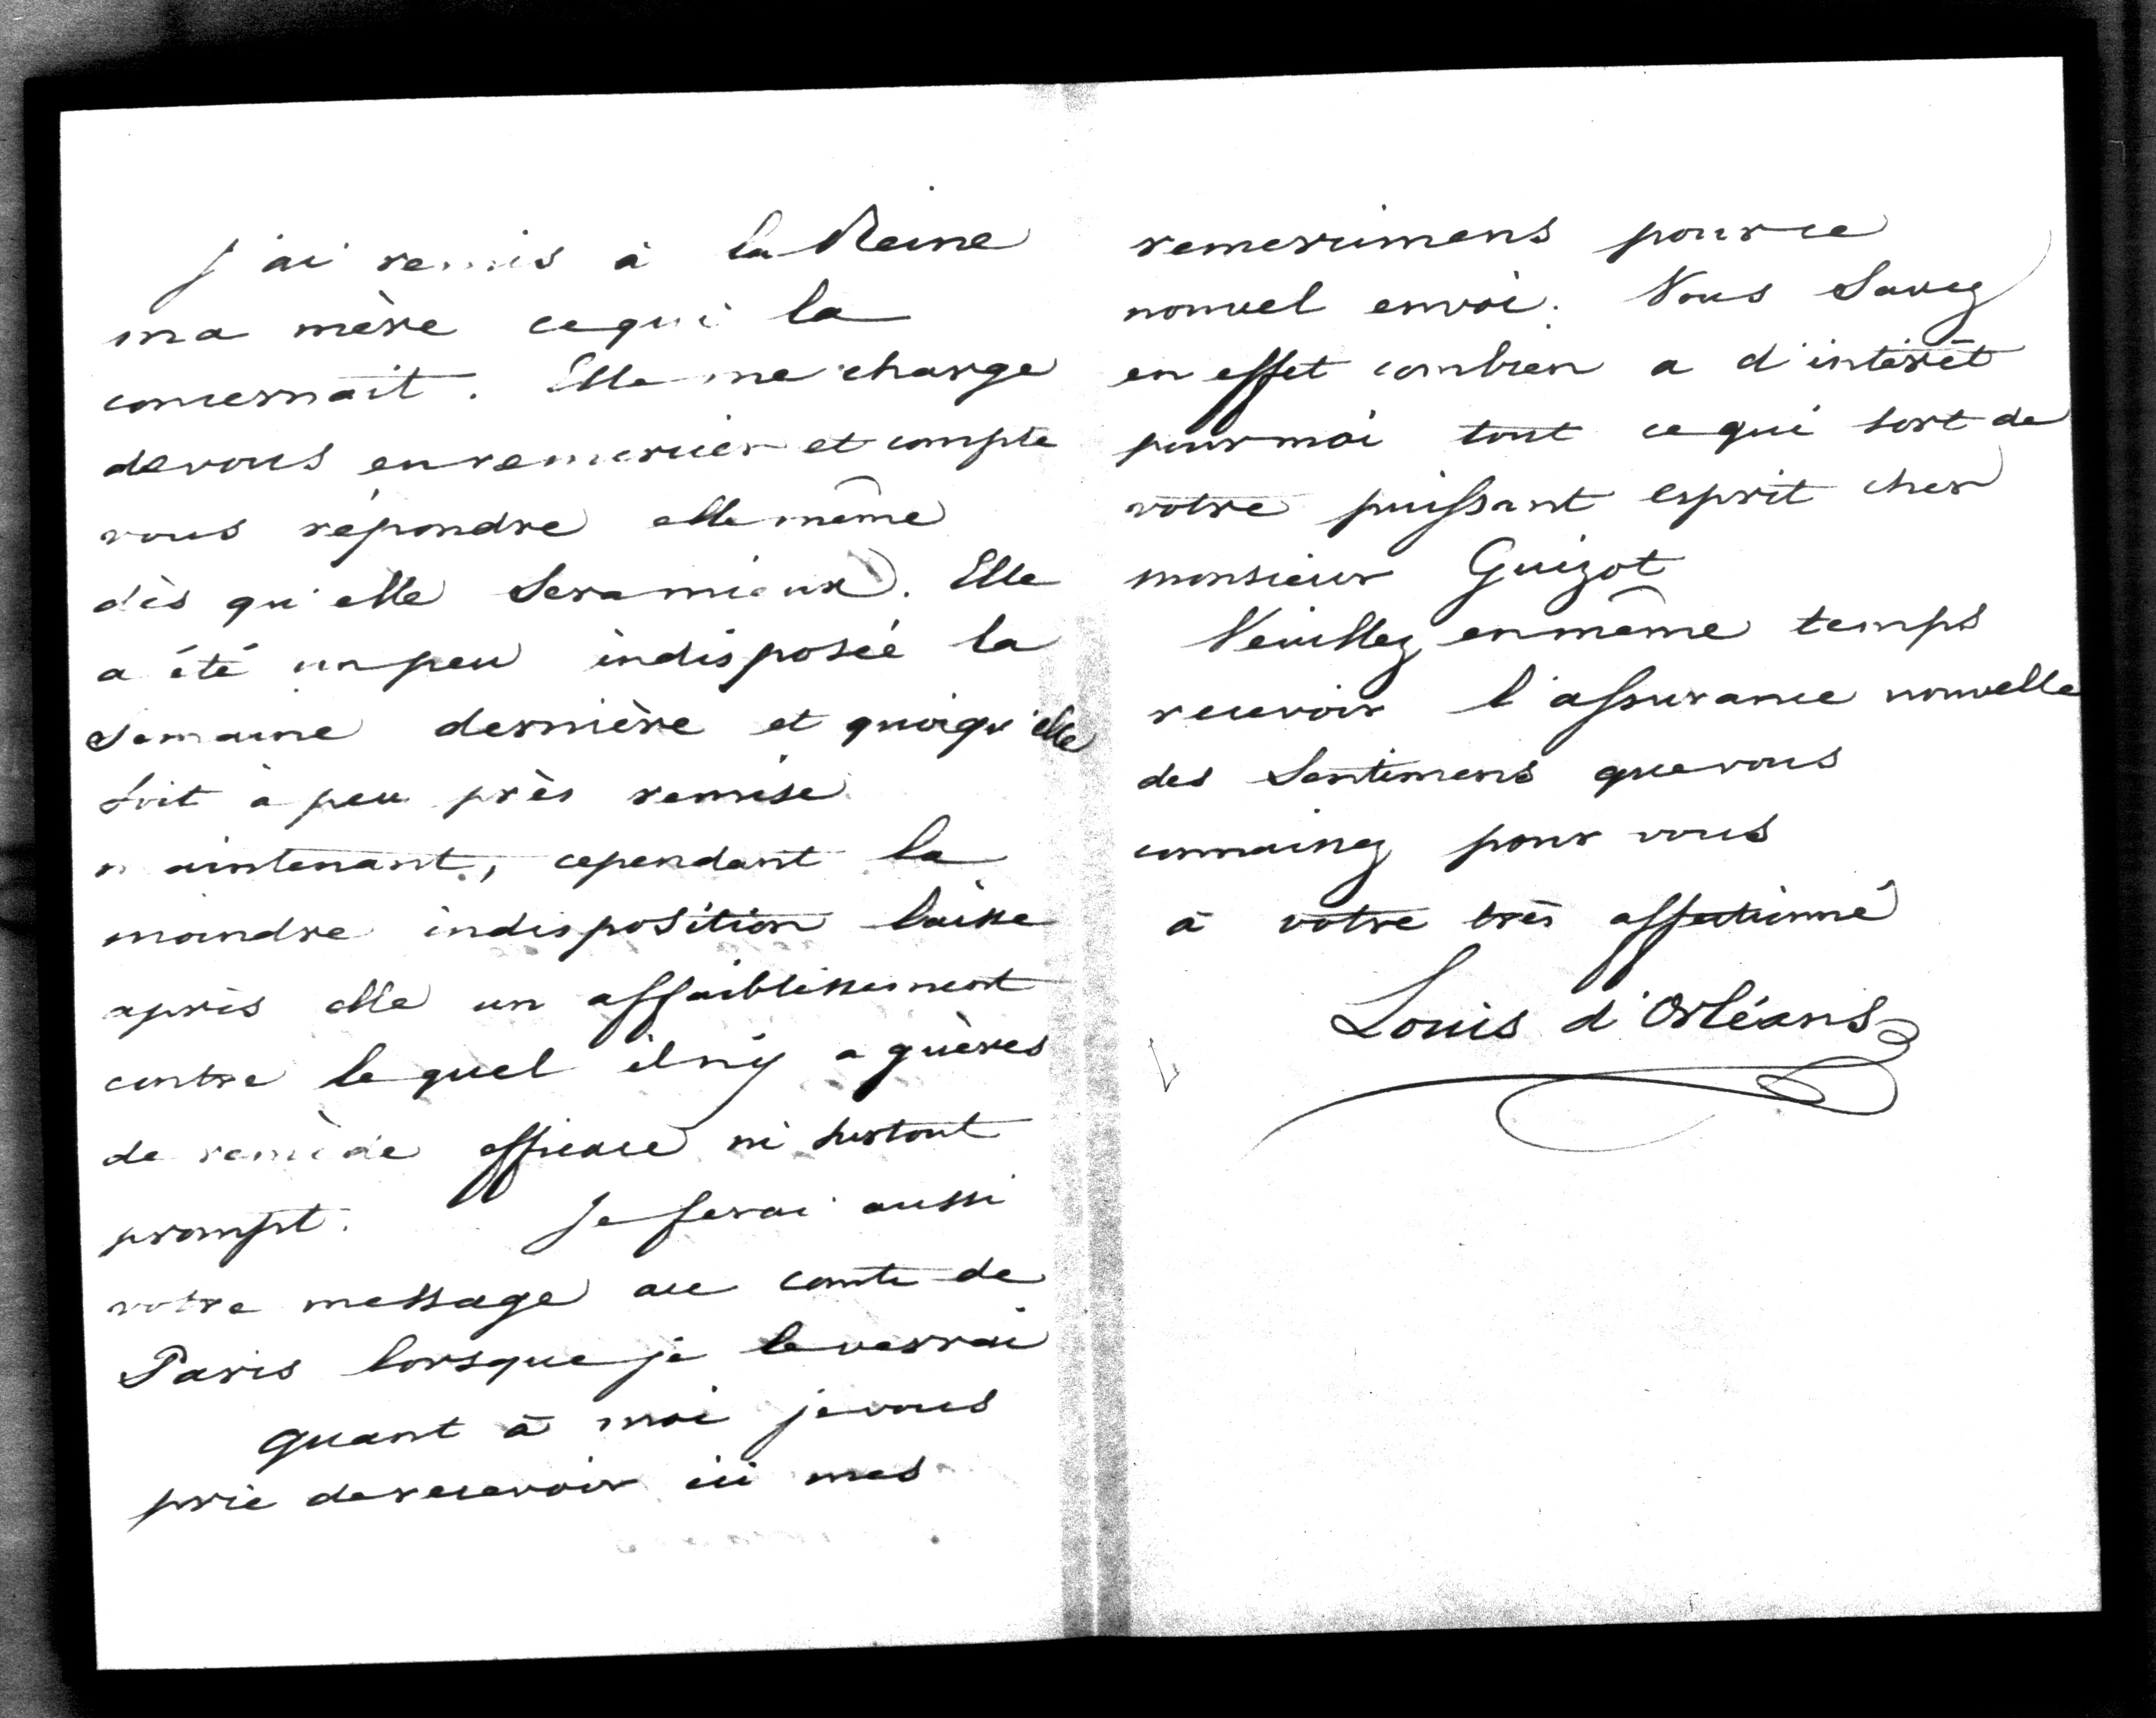 J'ai remis à la Reine
ma mère ce qui la
concernait. Elle me charge
de vous en remercier et compte
vous répondre elle même
dès qu'elle sera mieux. Elle
a été un peu indisposée la
semaine dernière et quoiqu'elle
soit à peu près remise
maintenant, cependant la
moindre indisposition laisse
après elle un affaiblissement
contre lequel il n'y a guères
de remède efficace ni surtout
prompt. Je ferai aussi
votre message au comte de
Paris lorsque je le verrai
quant à moi je vous
prie de recevoir ici mes
remercimens pour ce
nouvel envoi. Vous savez
en effet combien a d'intérêt
pour moi tout ce qui sort de
votre puissant esprit cher
monsieur Guizot
Veuillez en même temps
recevoir l'assurance nouvelle
des sentimens que vous
connaissez pour vous
à votre très affectionné
Louis d'Orléans